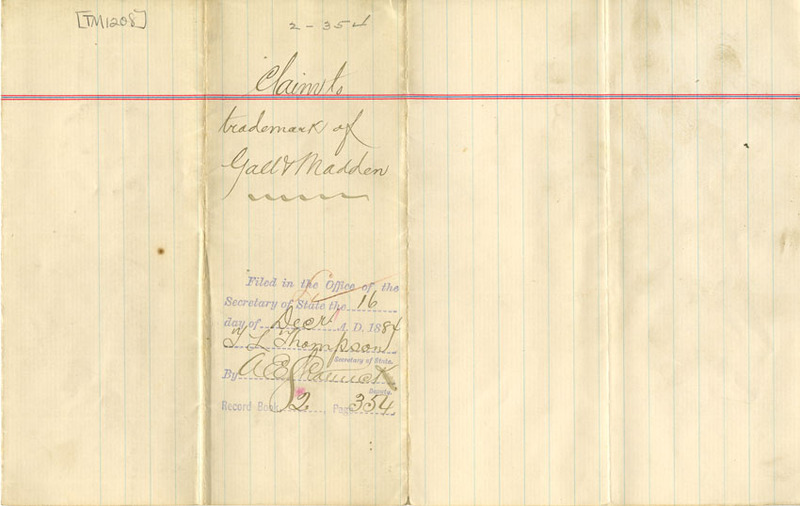 [TM1208]
2-354
Claim to
trademark of
Gall & Madden
Filed in the Office of the
Secretary of State the 16
day of Decr A. D. 1884
T L Thompson
Secretary of State.
By A E
Deputy.
Record Book 2, Page 354